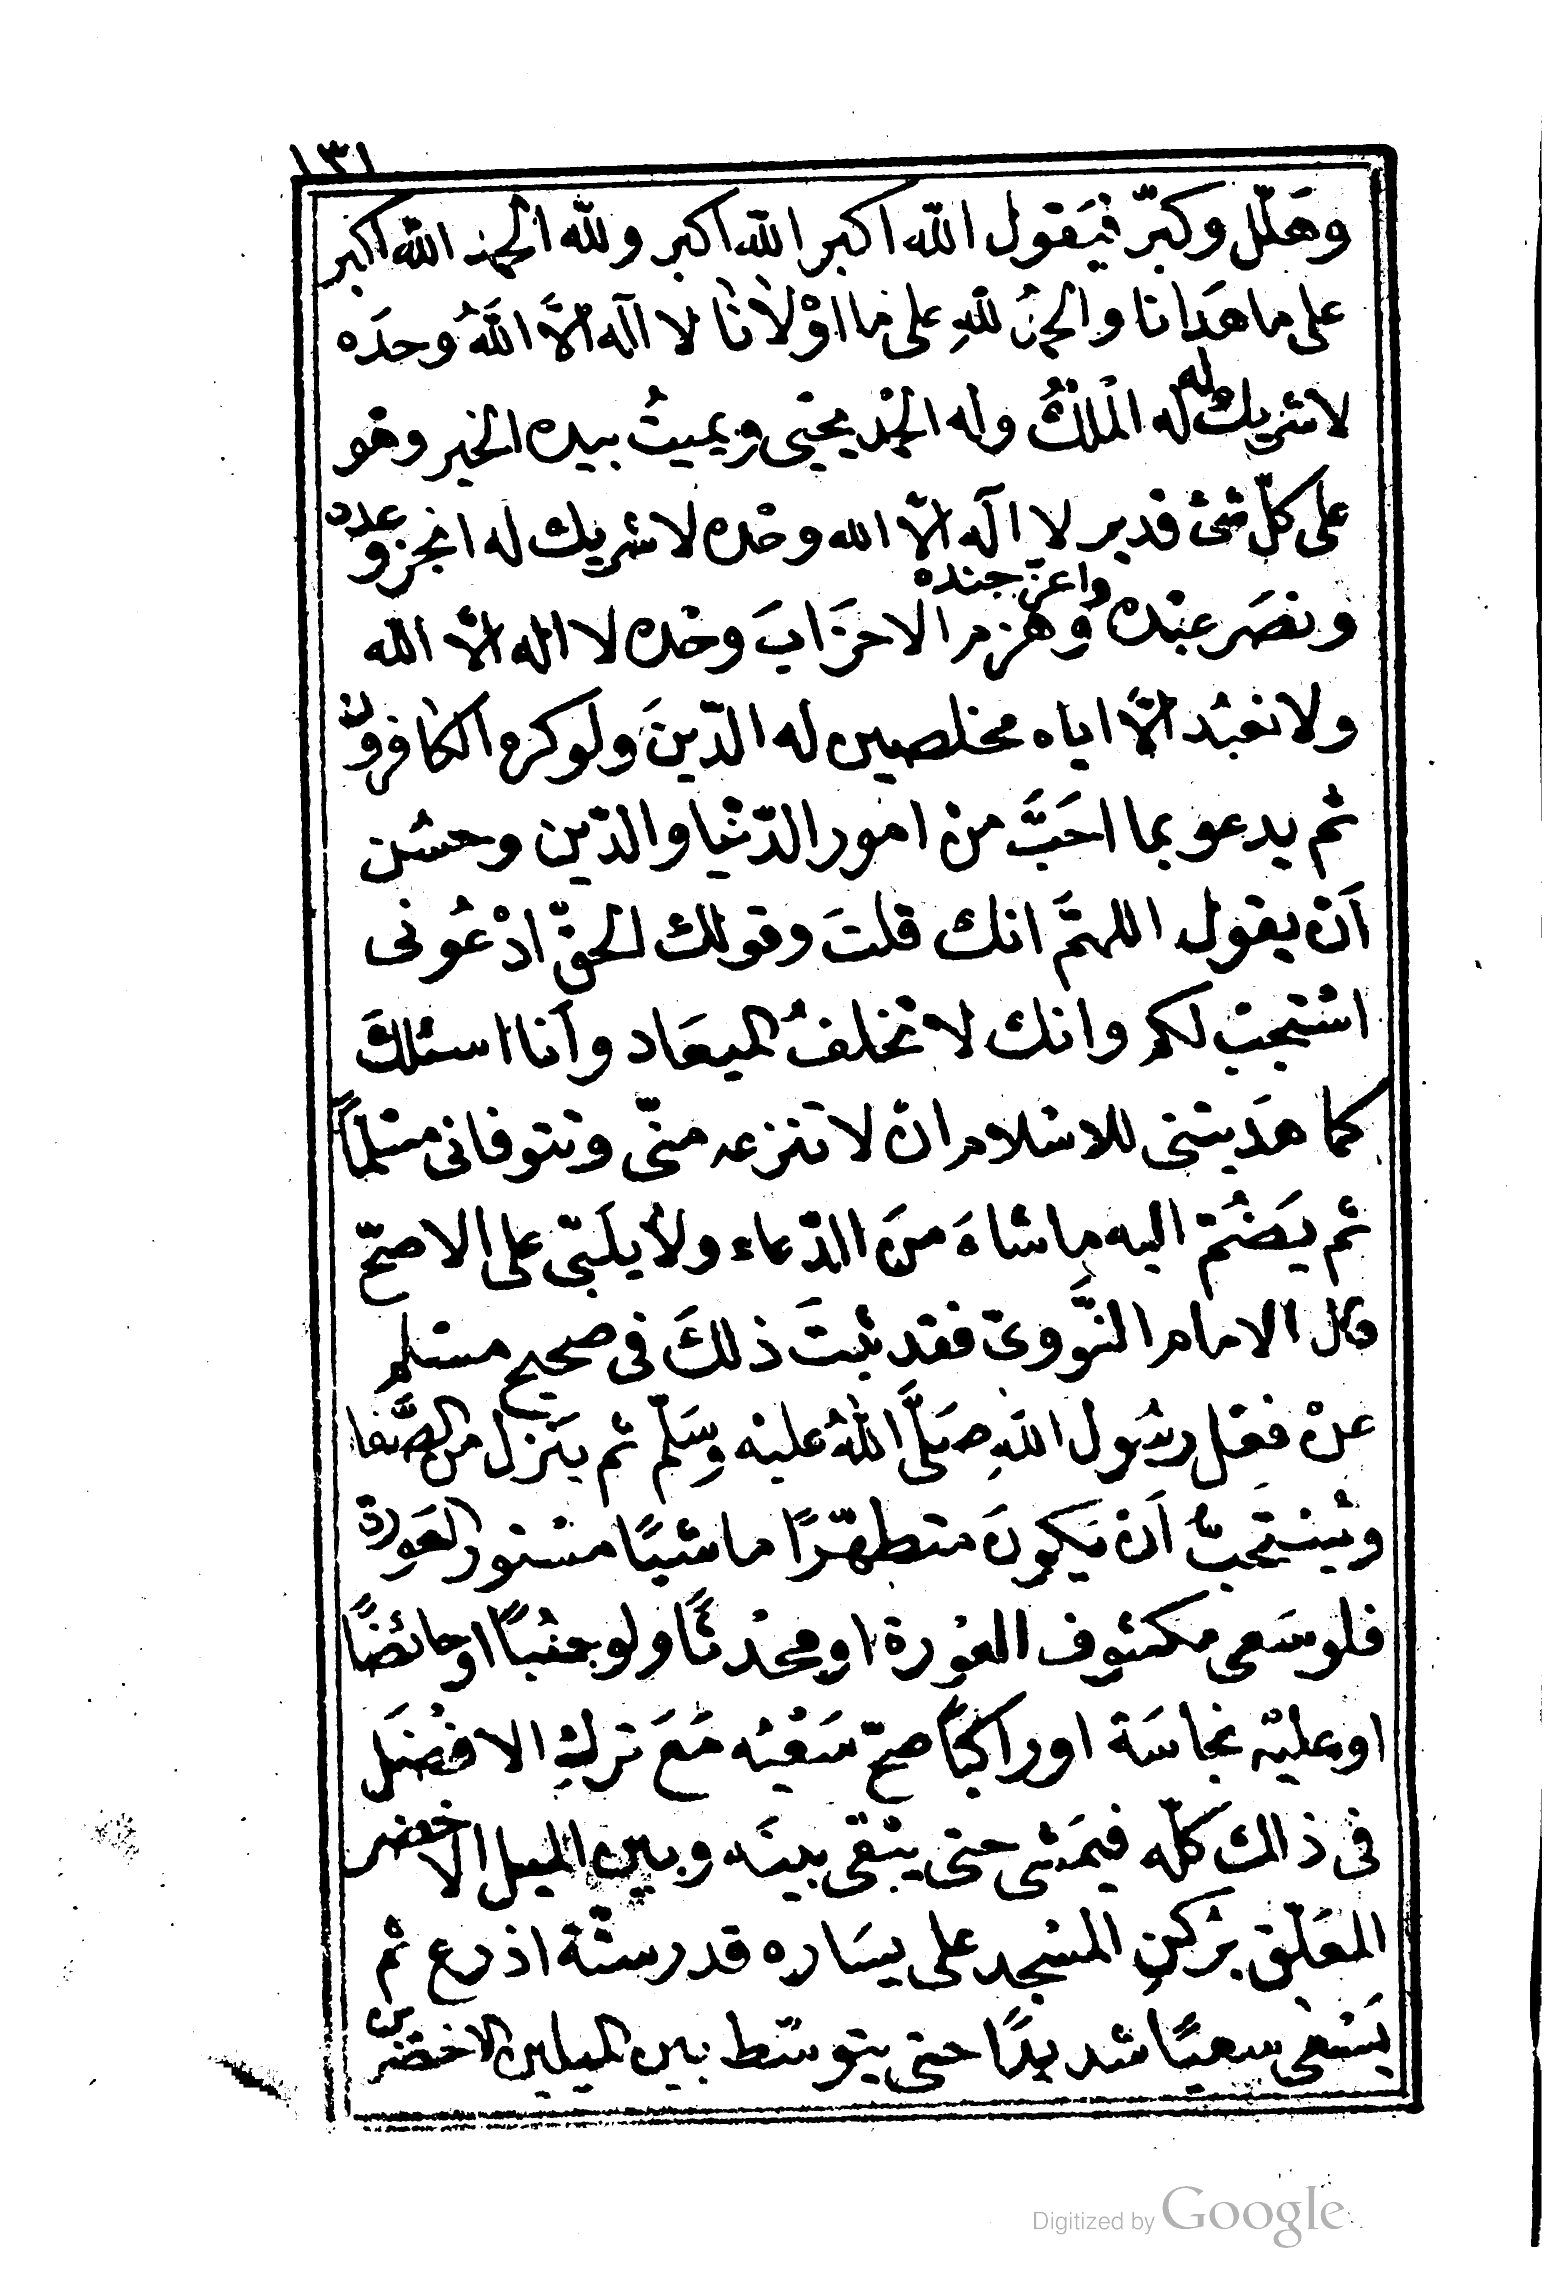 ١٣١
وهَلّل وكبّر فيَقول الله اكبر الله اكبر ولله الحمد الله اكبر
على ما هَدانا والحمدُ للهِ على ما اوْلانا لا اله الّا اللهُ وحدَه
لا شريك له له الملْكُ وله الحمْد يحيى ويميتُ بيده الخير وهْو
على كلّ شئ قدير لا اله الّا الله وحْده لا شريك له انجز وعده
ونصَر عبْده واعزّ جنده وهزم الاحزَابَ وحْده لا اله الّا الله
ولا نعبُد الّا اياه مخلصين له الدّينَ ولو كره الكافرون
ثم يدعو بما احَبَّ منْ امور الدّنْيا والدّين وحسُن
اَنْ يقول اللهمَّ انك قلتَ وقولك الحقّ ادْعُونى
استجبْ لكم وانك لا تخلفُ الميعَاد وأنا اسئلكَ
كما هدَيتنى للاسْلام انْ لا تنزعه منّى وتتوفانى مسْلماً
ثم يَضُمّ اليه ما شاءَ منَ الدّعاء ولا يلَبّى على الاصحّ
قال الامام النَّووىّ فقد ثبتَ ذلكَ فى صحيح مسْلم
عنْ فعْل رسُول اللهِ صَلَّى اللهُ عليْه وسَلّم ثم يَنزل من الصَّفا
ويُسْتَحبُّ اَنْ يَكونَ متطهّرًا ماشيًا مسْتور العَورة
فلو سَعى مكشوف العوْرة او محْدثًا ولو جنُبًا او حائضًا
او عليْه نجاسَة او راكبًا صحّ سَعْيُه مَعَ تركِ الافضَل
فى ذالك كلّه فيمَشى حتى يبْقى بينَه وبين الميل الاخضر
المعَلّق بركنِ المسْجد على يسَاره قدر ستّة اذرع ثم
يَسْعى سعيًا شديدًا حتى يتوسّط بين الميلين الاخضرين
Digitized by Google